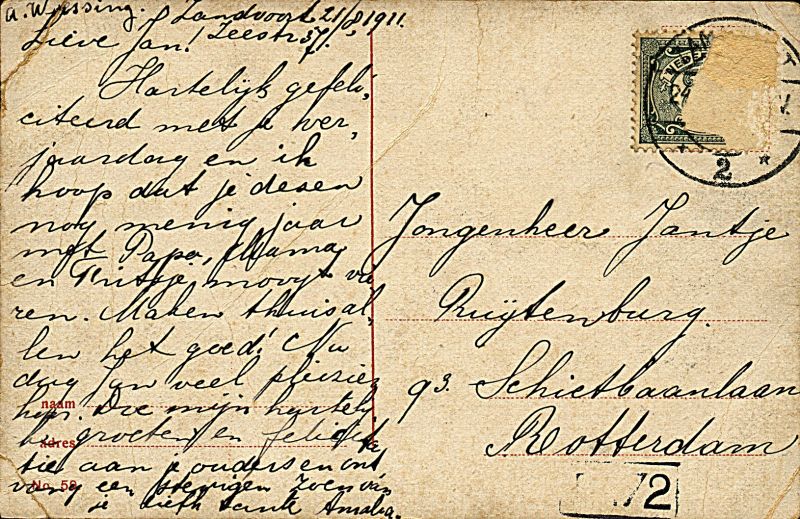 A. Wassing. Zandvoort 21/8 1911.
Lieve Jan! Zeestr 57.
Hartelijk gefeli,
citeerd met je ver,
jaardag en ik
hoop dat je dezen
nog menig jaar
met Papa, Mama
en Fritsje moogt vie
ren. Maken thuis al,
len het goed! Nu
dag Jan veel plezier
hoor. Doe mijn hartely
ke groeten en felicita
tie aan je ouders en ont
vang een stevigen zoen van
je liefh tante Amalia.
naam
adres
No. 58
NEDER
2
Jongenheer Jantje
Ruijtenburg.
93. Schietbaanlaan
Rotterdam
2